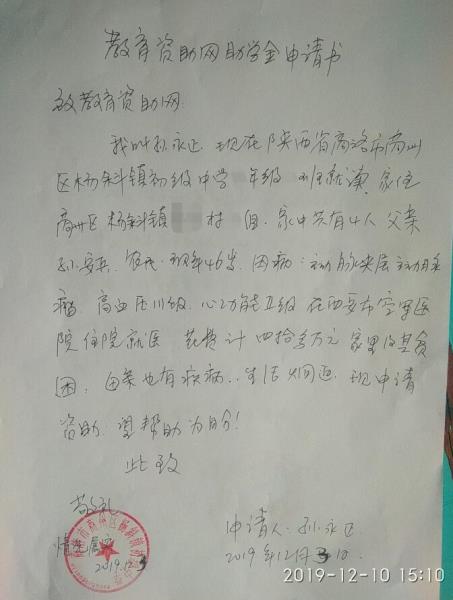 教育资助网助学金申请书
致教育资助网:
我叫孙永正. 现在陕西省商洛市商州
区杨斜镇初级中学 年级 班就读, 家住
商州区杨斜镇 村 组. 家中共有4人 父亲
孙安, 农民. 现年46岁. 因病: 主动脉夹层主动脉
瘤 高血压III级. 心功能II级 在西安市空军医
院住院就医 花费计 四拾多万元 家里及其贫
困, 母亲也有疾病.. 生活 窘迫. 现申请
资助. 望帮助为盼!
此致
敬礼
情况属实
2019.12.3
申请人: 孙永正
2019年12月 10.
2019-12-10 15:10